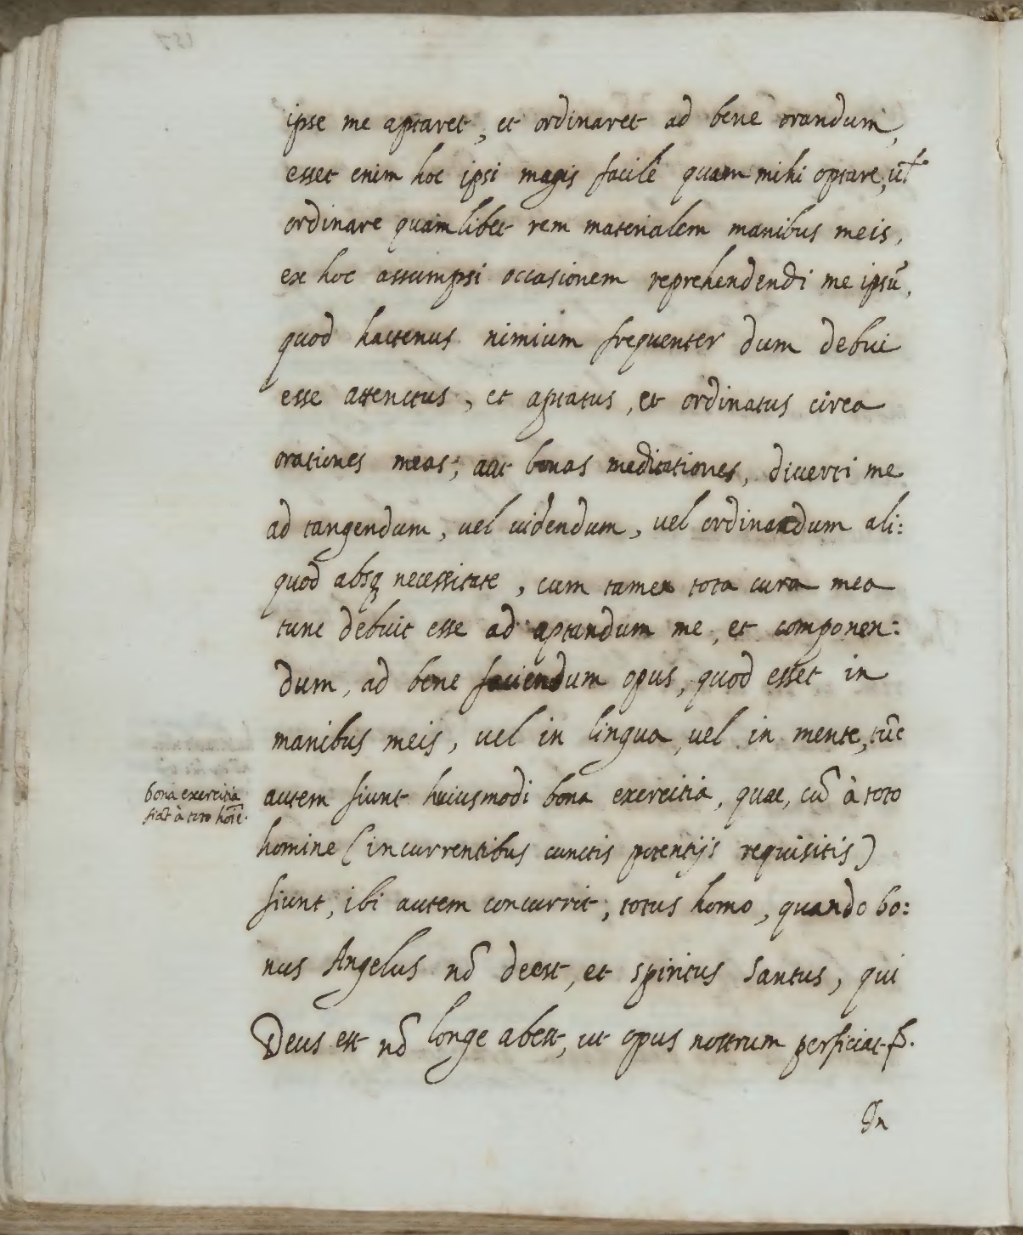 ipse me aptaret, et ordinaret ad bene orandum,
esset enim hoc ipsi magis facile quam mihi optare, ut̃
ordinare quamlibet rem materialem manibus meis,
ex hoc assumpsi occasionem reprehendendi me ipsũ,
quod hactenus nimium frequenter dum debui
esse attenctus, et aptatus, et ordinatus circa
orationes meas; aut bonas meditationes, diverti me
ad tangendum, vel uidendum, vel ordinandum ali:
quod absq necessitate, cum tamen tota cura mea
tunc debuit esse ad aptandum me, et componen:
dum, ad bene faciendum opus, quod esset in
manibus meis, vel in lingua, vel in mente, tũc
autem fiunt huiusmodi bona exercitia, quae, cũ à toto
homine (incurrentibus cunctis potentijs requisitis)
fiunt, ibi autem concurrit, totus homo, quando bo:
nus Angelus nõ deest, et spiritus Santus, qui
Deus est nõ longe abest, ut opus nostrum perficiat
In
bona exercitia
fiãt à toto hoĩe.